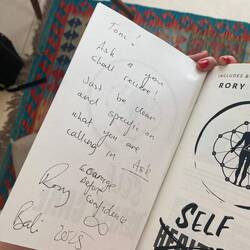 Toni!
Ask & you
shall recieve!
Just be clear
and specific on
what you are
calling in
Ask
Rory
Confidence
Bali 2025
INCLUDES B
RORY
SELF